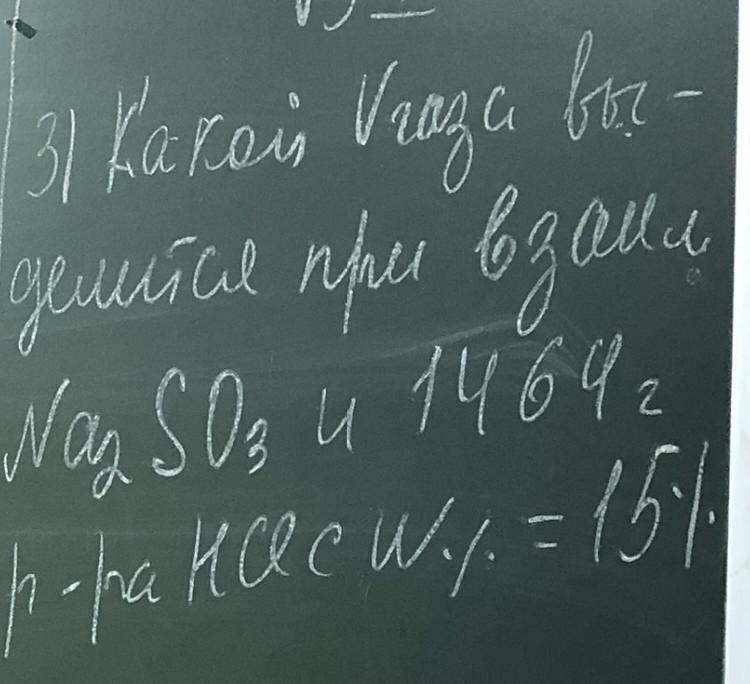 3) Какой Vгаза вы-
делится при взаим.
Na₂SO₃ и 1464 г
р-ра HCl с W.% = 15%